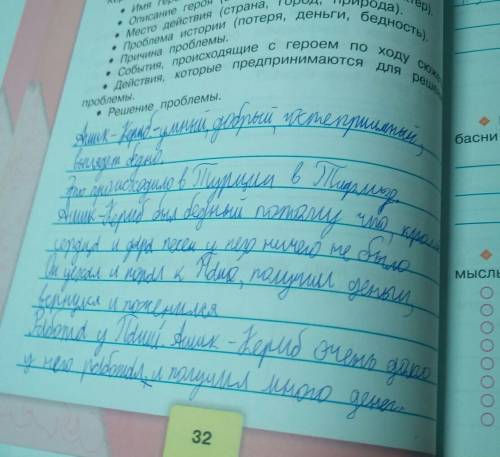 • Имя геро
• Описание героя
• Место действия (страна, город, природа).
• Проблема истории (потеря, деньги, бедность).
• Причина проблемы.
• События, происходящие с героем по ходу сюже
• Действия, которые предпринимаются для реше
проблемы.
• Решение проблемы.
Ашик-Кериб-умный, добрый, гостеприимный,
выглядет бедно.
Это происходило в Турции в
Ашик-Кериб был бедный потому что, кроме
сердца и дара песен у него ничего не было
Он уехал и попал к Паше, получил деньги,
вернулся и поженился
Работа у Ашик-Кериб очень
у него работал, и получил много денег.
32
басни
мысль